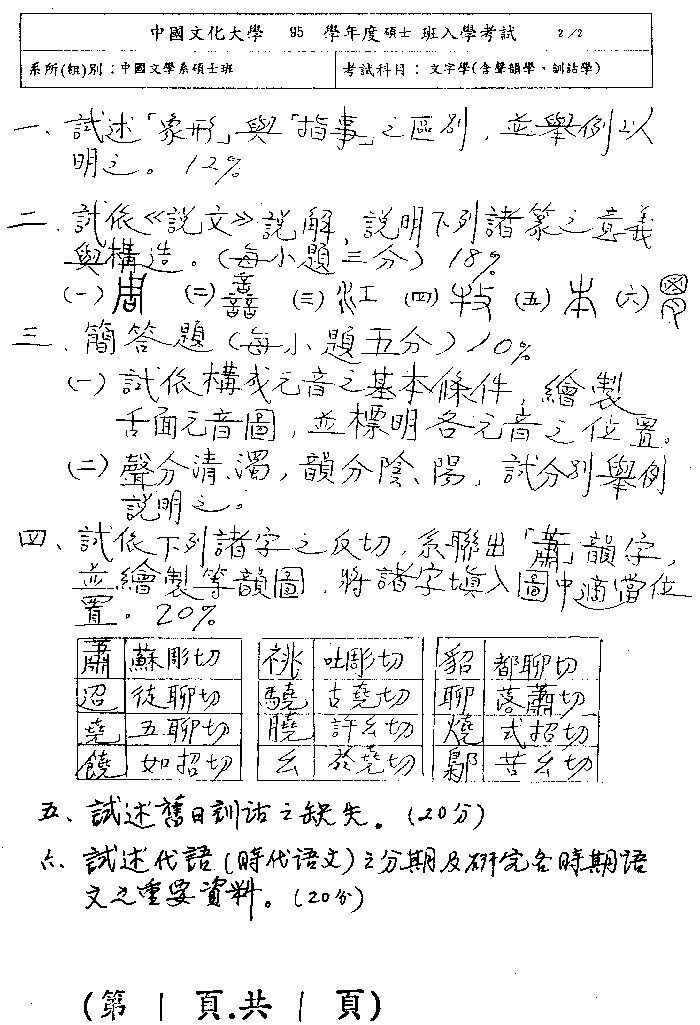 中國文化大學 95 學年度碩士班入學考試 2/2
系所(組)別：中國文學系碩士班 考試科目：文字學(含聲韻學、訓詁學)
一、試述「象形」與「指事」之區別，並舉例以
明之。12%
二、試依《說文》說解，說明下列諸篆之意義
與構造。(每小題三分) 18%
(一) (二) (三) (四) (五) (六)
三、簡答題(每小題五分) 10%
(一)試依構成元音之基本條件，繪製
舌面元音圖，並標明各元音之位置。
(二)聲分清、濁，韻分陰、陽，試分別舉例
說明之。
四、試依下列諸字之反切，系聯出「蕭」韻字，
並繪製等韻圖，將諸字填入圖中適當位
置。20%
蕭 蘇彫切 祧 吐彫切 貂 都聊切
迢 徒聊切 驍 古堯切 聊 落蕭切
堯 五聊切 膮 許幺切 燒 式招切
饒 如招切 幺 於堯切 鄡 苦幺切
五、試述舊日訓詁之缺失。(20分)
六、試述代語(時代语文)之分期及研究各時期語
文之重要資料。(20分)
(第 1 頁.共 1 頁)